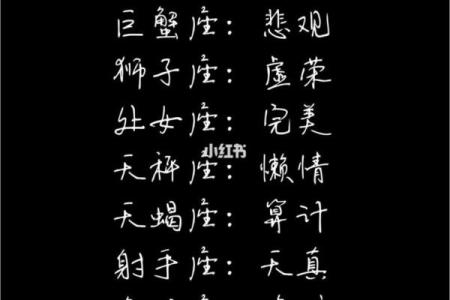 巨蟹座：悲观
狮子座：虚荣
处女座：完美
小红书
天秤座：懒情
天蝎座：算计
射手座：天真